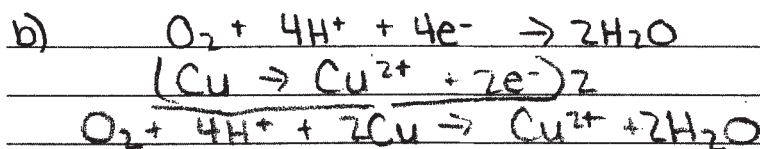 b) O₂ + 4H⁺ + 4e⁻ → 2H₂O
(Cu → Cu²⁺ + 2e⁻)2
O₂ + 4H⁺ + 2Cu → Cu²⁺ + 2H₂O